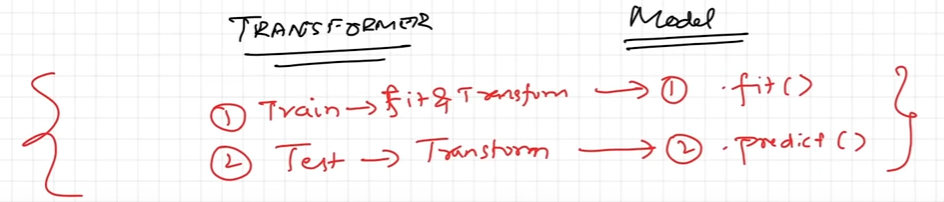 TRANSFORMER Model
① Train → fit & Transform → ① .fit()
② Test → Transform → ② .predict()